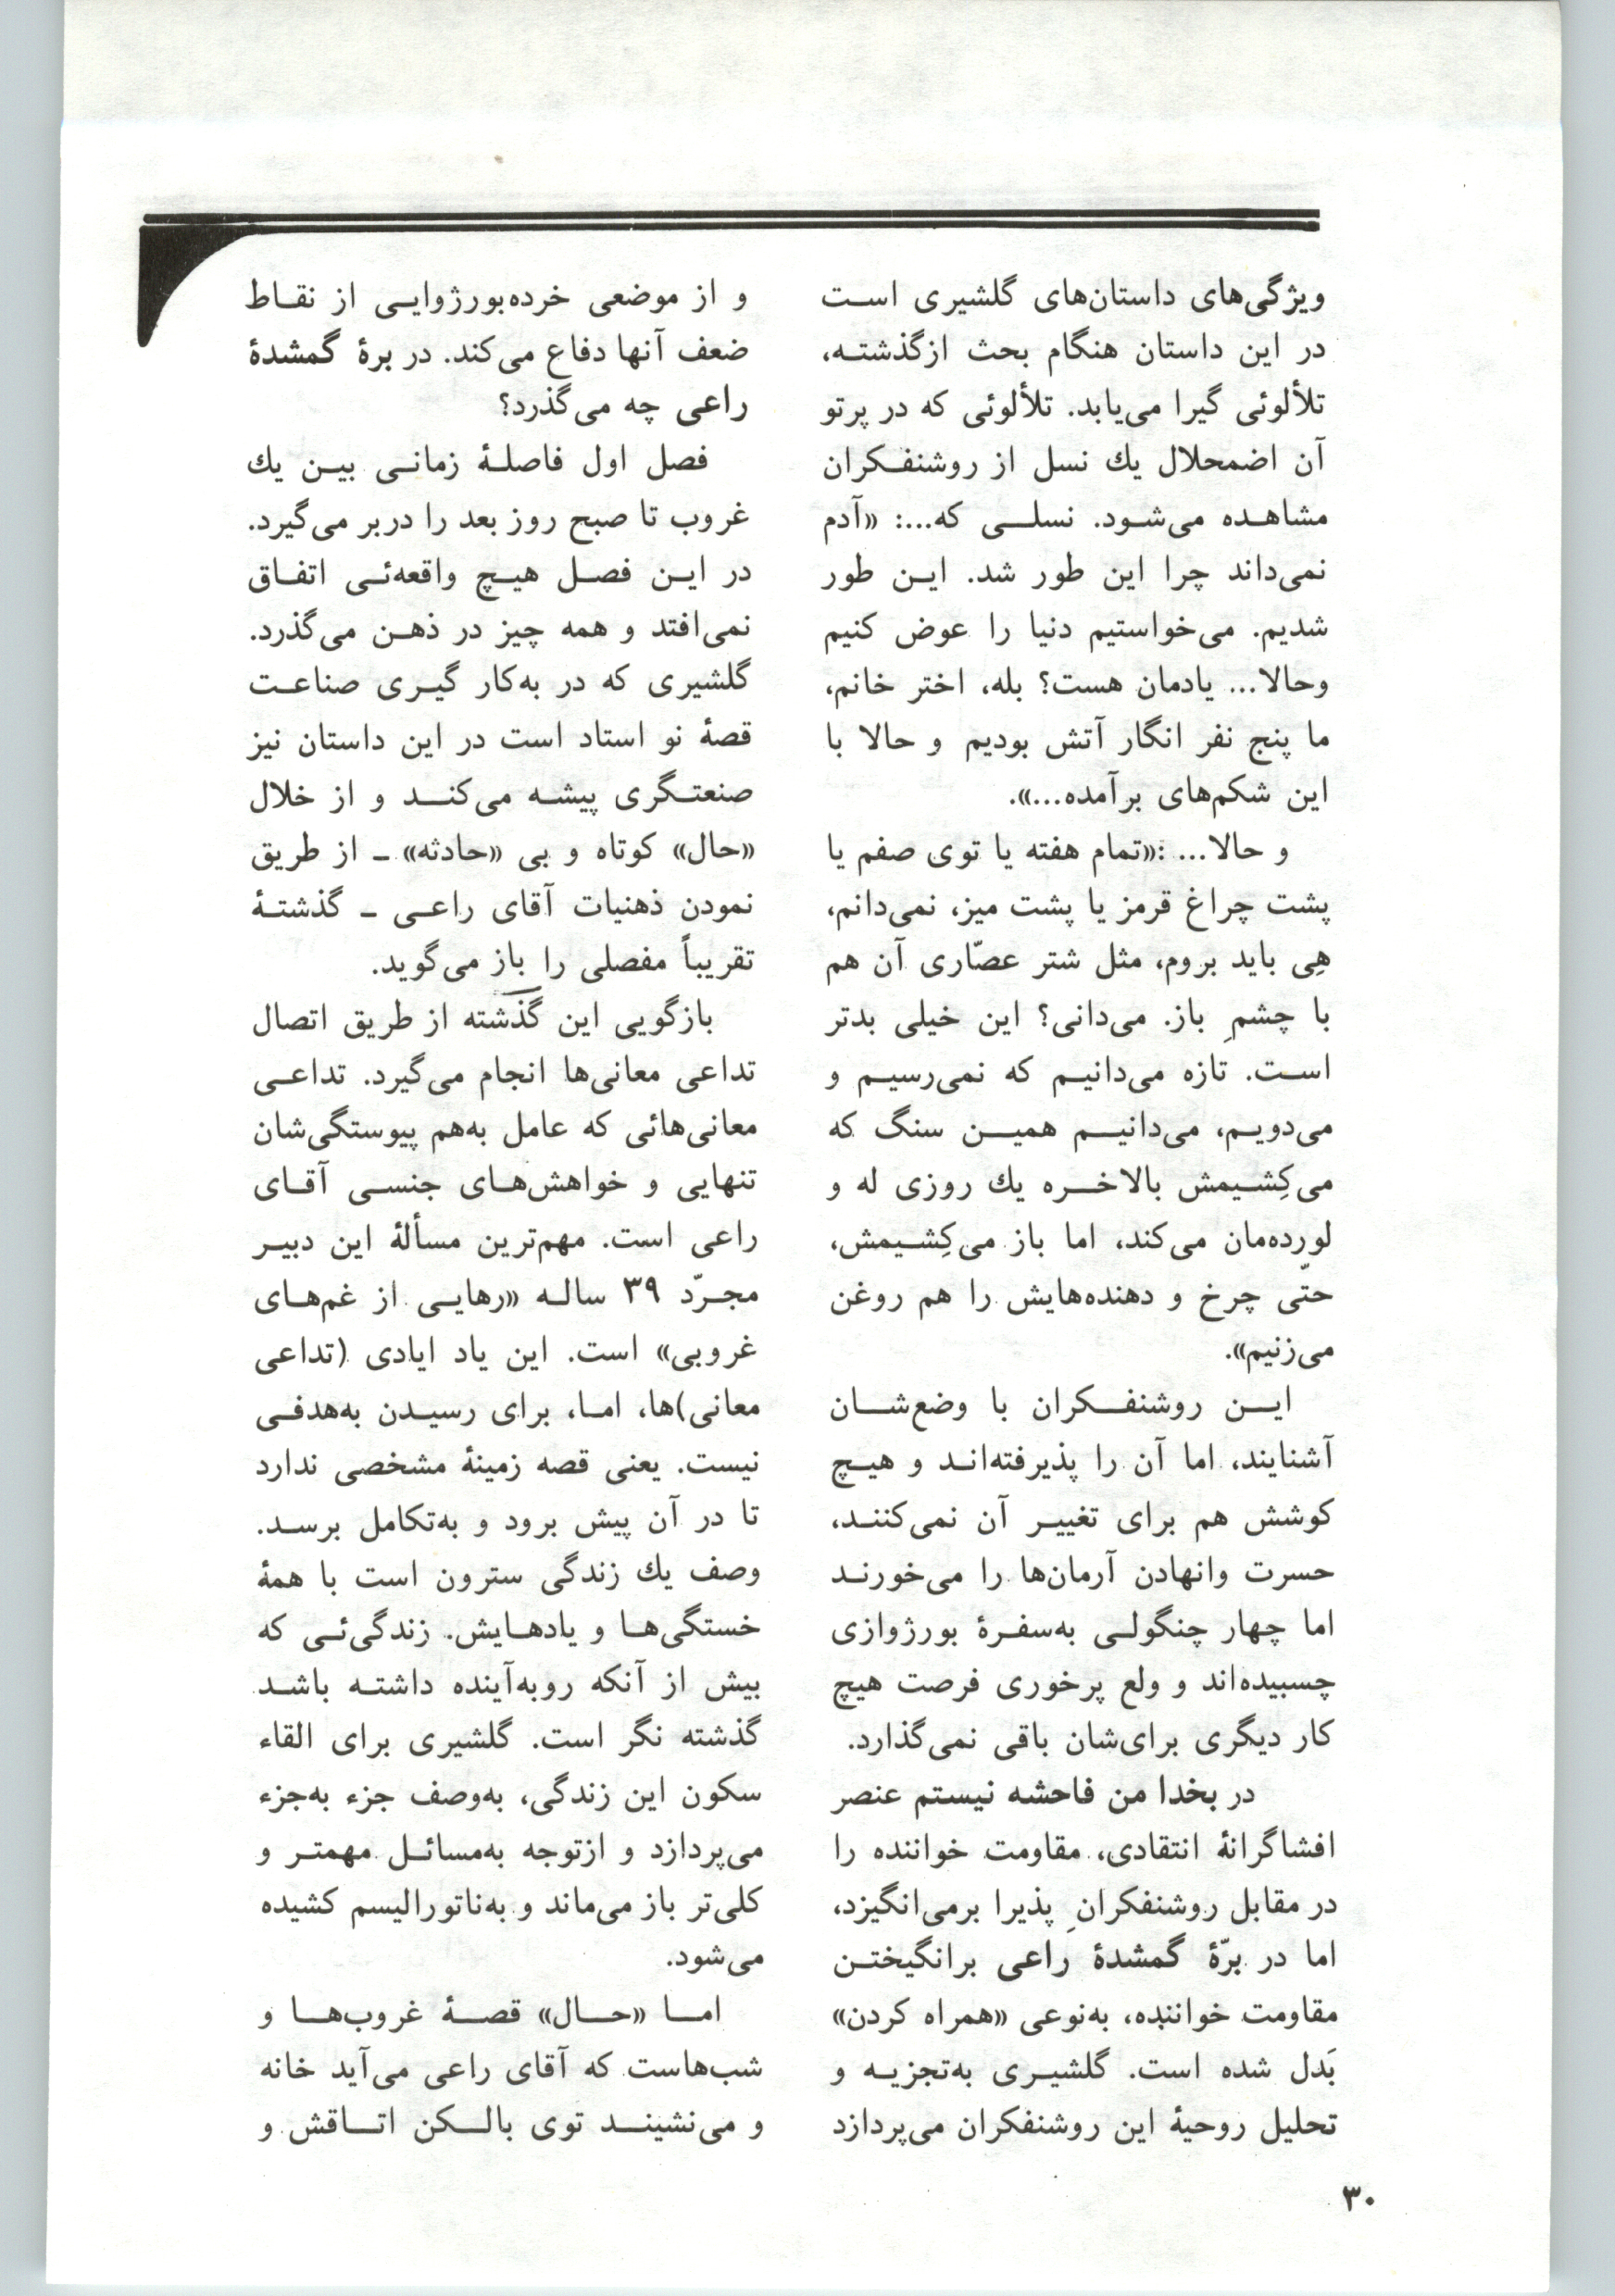 ویژگی‌های داستان‌های گلشیری است
در این داستان هنگام بحث ازگذشته،
تلألوئی گیرا می‌یابد. تلألوئی که در پرتو
آن اضمحلال یك نسل از روشنفکران
مشاهده می‌شود. نسلی که...: «آدم
نمی‌داند چرا این طور شد. این طور
شدیم. می‌خواستیم دنیا را عوض کنیم
وحالا... یادمان هست؟ بله، اختر خانم،
ما پنج نفر انگار آتش بودیم و حالا با
این شکم‌های برآمده...».
و حالا... :«تمام هفته یا توی صفم یا
پشت چراغ قرمز یا پشت میز، نمی‌دانم،
هِی باید بروم، مثل شتر عصّاری آن هم
با چشمِ باز. می‌دانی؟ این خیلی بدتر
است. تازه می‌دانیم که نمی‌رسیم و
می‌دویم، می‌دانیم همین سنگ که
می‌کِشیمش بالاخره یك روزی له و
لورده‌مان می‌کند، اما باز می‌کِشیمش،
حتّی چرخ و دهنده‌هایش را هم روغن
می‌زنیم».
این روشنفکران با وضع‌شان
آشنایند، اما آن را پذیرفته‌اند و هیچ
کوشش هم برای تغییر آن نمی‌کنند،
حسرت وانهادن آرمان‌ها را می‌خورند
اما چهار چنگولی به‌سفرهٔ بورژوازی
چسبیده‌اند و ولع پرخوری فرصت هیچ
کار دیگری برای‌شان باقی نمی‌گذارد.
در بخدا من فاحشه نیستم عنصر
افشاگرانهٔ انتقادی، مقاومت خواننده را
در مقابل روشنفکرانِ پذیرا برمی‌انگیزد،
اما در برّهٔ گمشدهٔ راعی برانگیختن
مقاومت خواننده، به‌نوعی «همراه کردن»
بَدل شده است. گلشیری به‌تجزیه و
تحلیل روحیهٔ این روشنفکران می‌پردازد
و از موضعی خرده‌بورژوایی از نقاط
ضعف آنها دفاع می‌کند. در برهٔ گمشدهٔ
راعی چه می‌گذرد؟
فصل اول فاصلهٔ زمانی بین یك
غروب تا صبح روز بعد را دربر می‌گیرد.
در این فصل هیچ واقعه‌ئی اتفاق
نمی‌افتد و همه چیز در ذهن می‌گذرد.
گلشیری که در به‌کار گیری صناعت
قصهٔ نو استاد است در این داستان نیز
صنعتگری پیشه می‌کند و از خلال
«حال» کوتاه و بی «حادثه» ـ از طریق
نمودن ذهنیات آقای راعی ـ گذشتهٔ
تقریباً مفصلی را باز می‌گوید.
بازگویی این گذشته از طریق اتصال
تداعی معانی‌ها انجام می‌گیرد. تداعی
معانی‌هائی که عامل به‌هم پیوستگی‌شان
تنهایی و خواهش‌های جنسی آقای
راعی است. مهم‌ترین مسألهٔ این دبیر
مجرّد ۳۹ ساله «رهایی از غم‌های
غروبی» است. این یاد ایادی (تداعی
معانی)ها، اما، برای رسیدن به‌هدفی
نیست. یعنی قصه زمینهٔ مشخصی ندارد
تا در آن پیش برود و به‌تکامل برسد.
وصف یك زندگی سترون است با همهٔ
خستگی‌ها و یادهایش. زندگی‌ئی که
بیش از آنکه روبه‌آینده داشته باشد
گذشته نگر است. گلشیری برای القاء
سکون این زندگی، به‌وصف جزء به‌جزء
می‌پردازد و ازتوجه به‌مسائل مهمتر و
کلی‌تر باز می‌ماند و به‌ناتورالیسم کشیده
می‌شود.
اما «حال» قصهٔ غروب‌ها و
شب‌هاست که آقای راعی می‌آید خانه
و می‌نشیند توی بالکن اتاقش و
۳۰